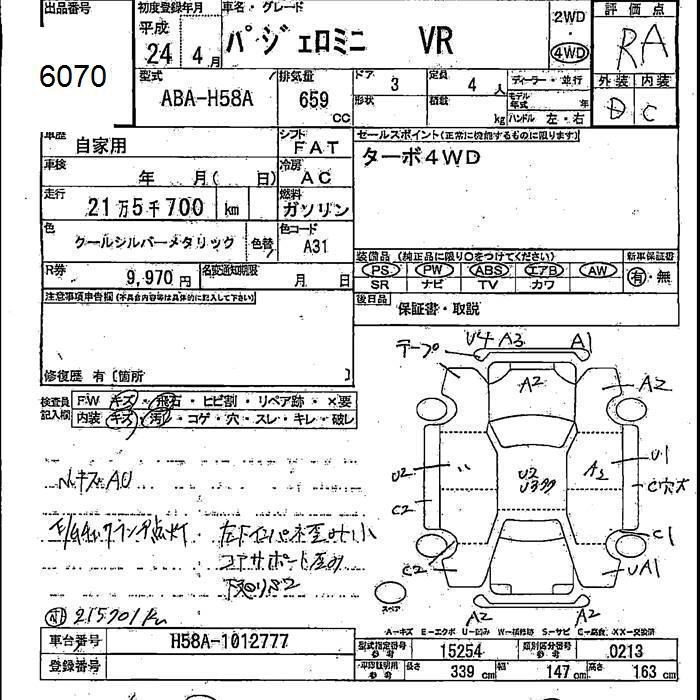 出品番号 初度登録年月 車名・グレード 評価点
平成 2WD
24年 4月 パジェロミニ VR 4WD RA
6070
型式 排気量 ドア 定員 ディーラー・並行 外装 内装
ABA-H58A 659 CC 3 4人 モデル年式 年 D C
形状 積載 kg ハンドル 左・右
車歴 シフト セールスポイント(正常に機能するものに限ります)
自家用 FAT ターボ4WD
車検 冷房
年 月( 日) AC
走行 燃料
21万5千700 km ガソリン
色 色コード
クールシルバーメタリック 色替 A31
装備品(純正品に限り○をつけてください) 新車保証書
R券 名変通知期限 PS PW ABS エアB AW 有・無
9,970円 月 日 SR ナビ TV カワ
注意事項申告欄(不具合内容等は具体的に記入して下さい) 後日品 保証書・取説
修復歴 有〔箇所 〕
検査員記入欄 FW キズ・飛石・ヒビ割・リペア跡・×要
内装 キズ・汚れ・コゲ・穴・スレ・キレ・破レ
テープ U4 A3 A1
A2 A2
U2 U2 A2 U1
C2 C穴大
C1
C2 UA1
A2 A2
スペア
215701km
A-キズ E-エクボ U-凹み W-補修跡 S-サビ C-腐食 XX-交換済
車台番号 H58A-1012777 型式指定番号 参考 15254 類別区分番号 参考 0213
登録番号 参考 長さ 339 cm 幅 147 cm 高さ 163 cm